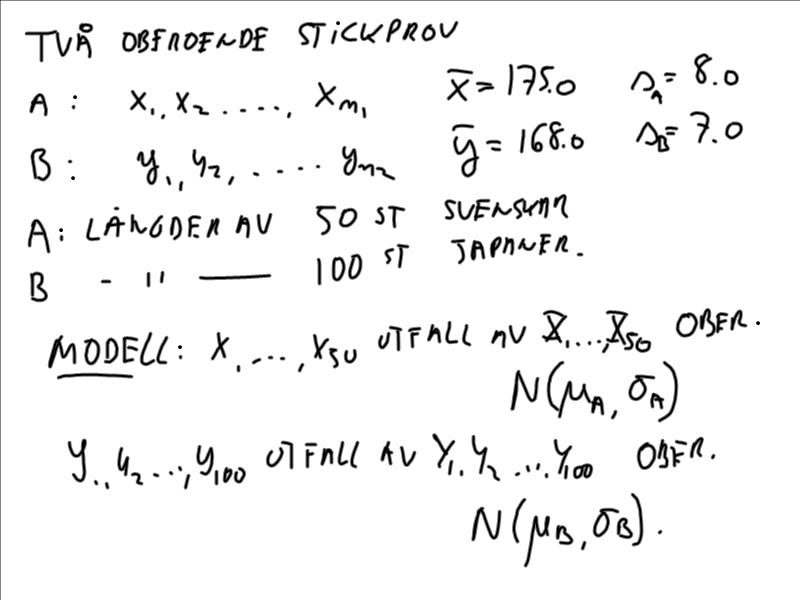 TVÅ OBEROENDE STICKPROV
A: x₁, x₂ ...., xₙ₁ x̄ = 175.0 s_A = 8.0
B: y₁, y₂, ..... yₙ₂ ȳ = 168.0 s_B = 7.0
A: LÄNGDER AV 50 ST SVENSKAR
B - " — 100 ST JAPANER.
MODELL: x₁, ..., x₅₀ UTFALL AV X₁, ..., X₅₀ OBER.
N(μ_A, σ_A)
y₁, y₂ ..., y₁₀₀ UTFALL AV Y₁, Y₂ ... Y₁₀₀ OBER.
N(μ_B, σ_B).